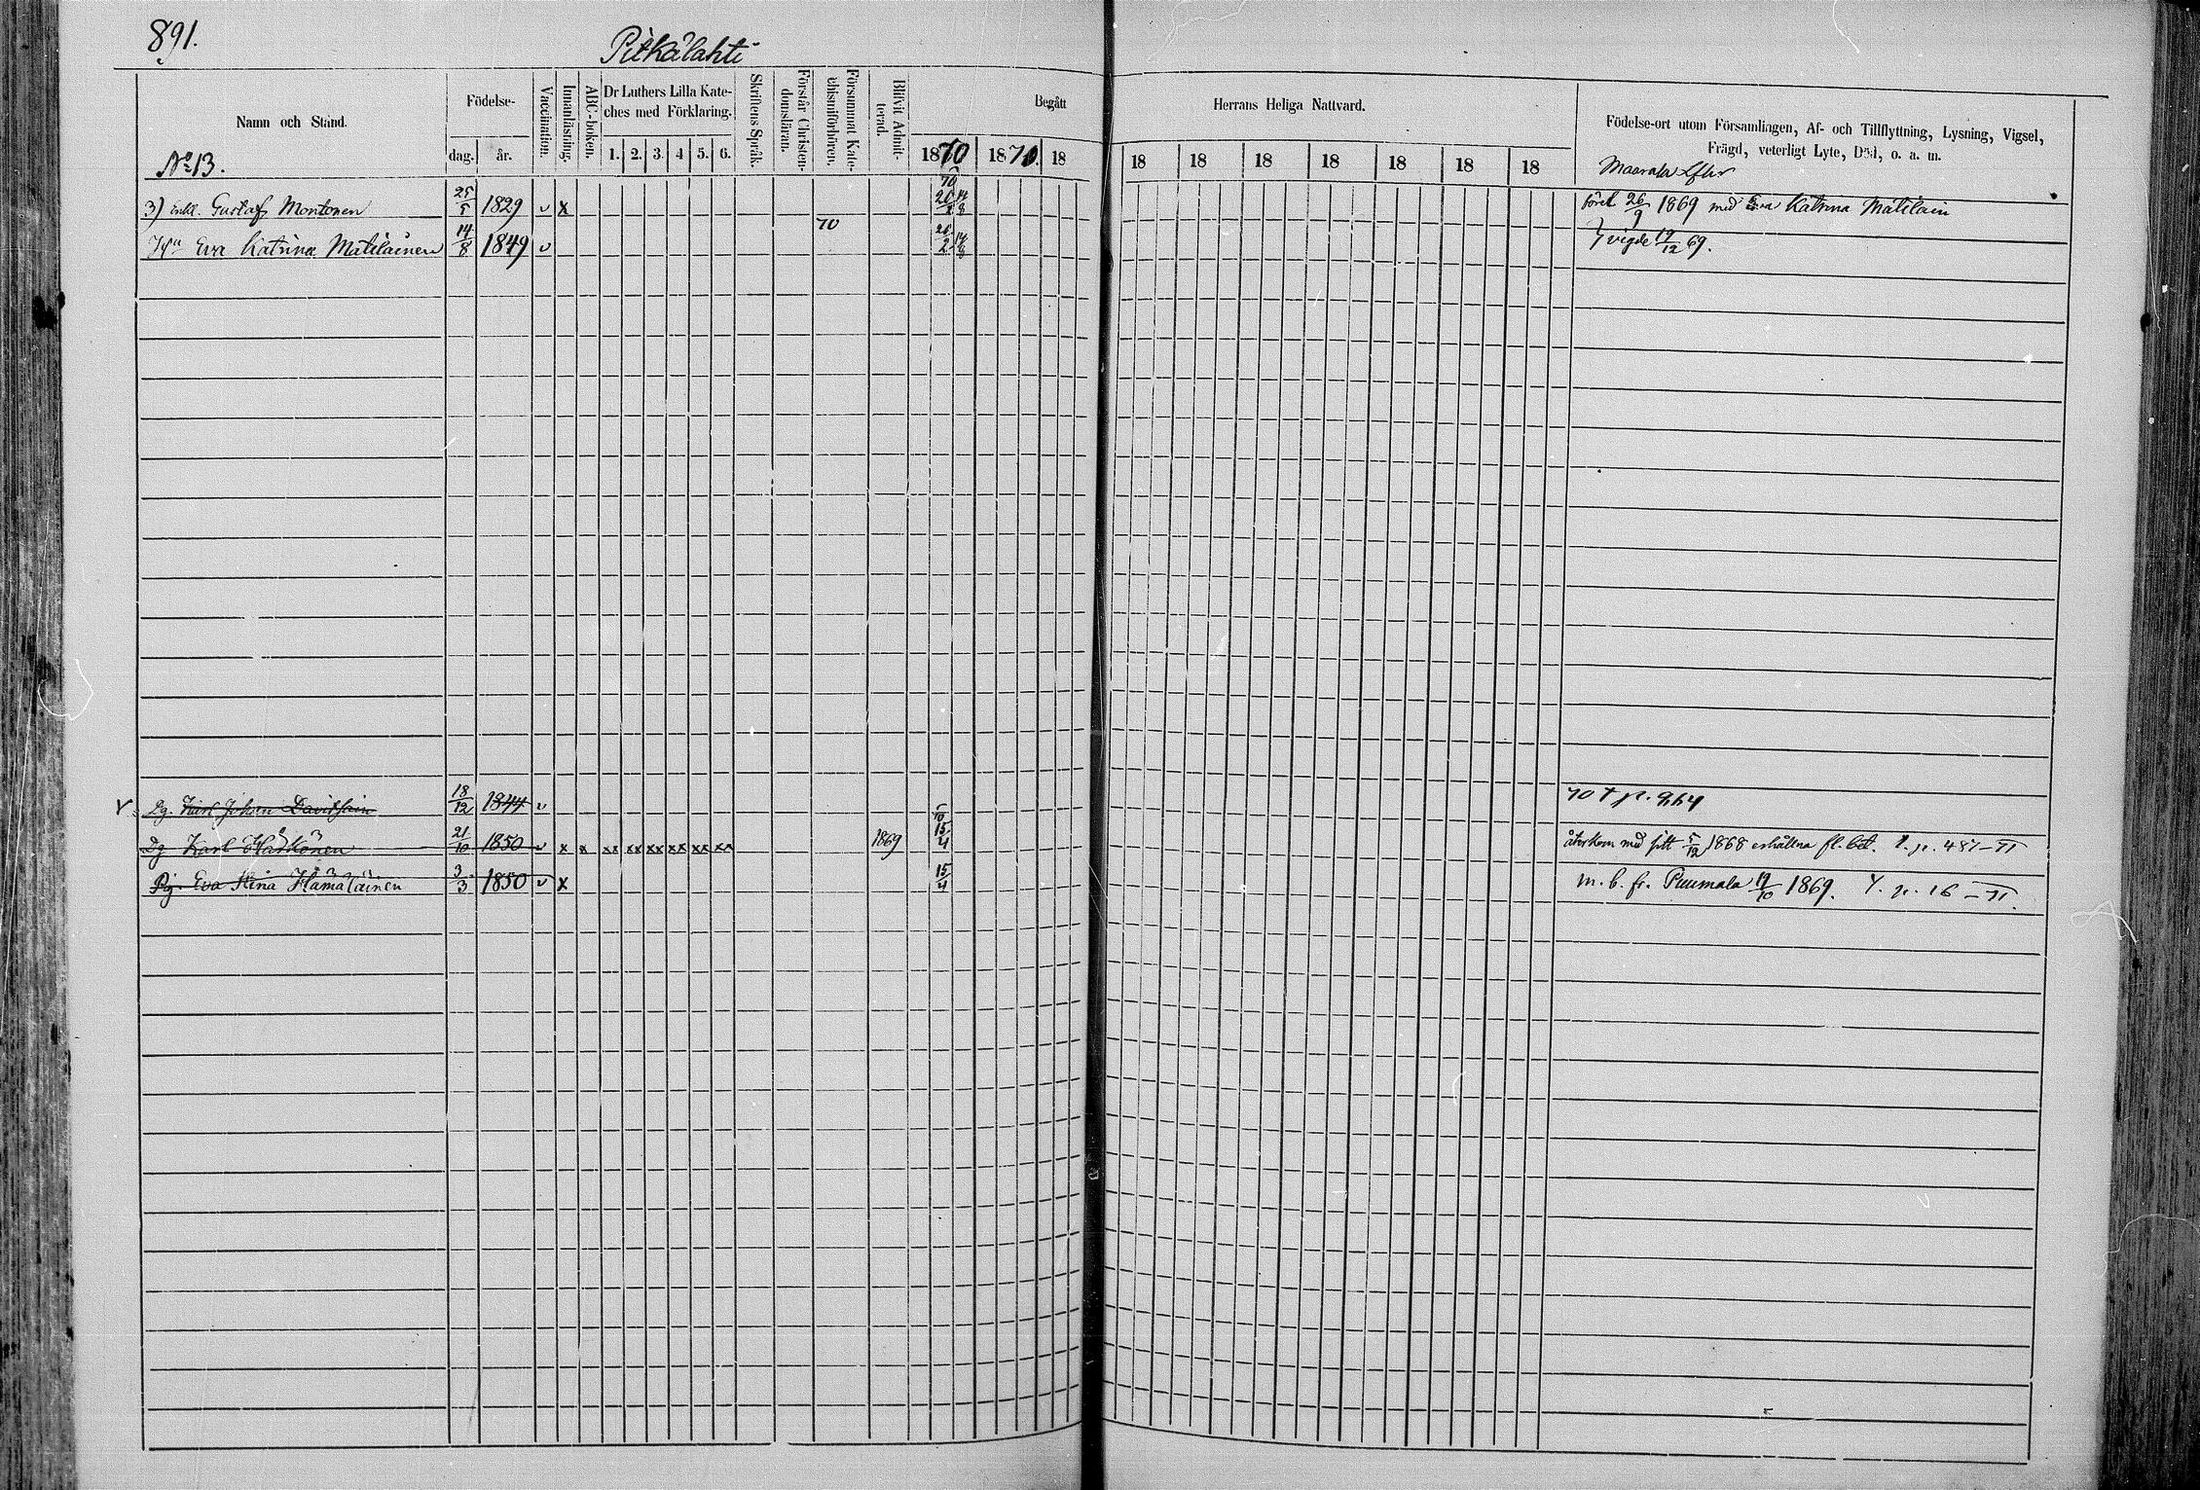 891.
Pitkälahti
Namn och Stånd.
Födelse-
dag. år.
Vaccination.
Innanläsning.
ABC-boken.
Dr Luthers Lilla Kate-
ches med Förklaring.
1. 2. 3. 4 5. 6.
Skriftens Språk.
Förstår Christen-
domsläran.
Försummat Kate-
chismiförhören.
Blifvit Admit-
terad.
Begått
1870 1870. 18
Herrans Heliga Nattvard.
18 18 18 18 18 18 18
Födelse-ort utom Församlingen, Af- och Tillflyttning, Lysning, Vigsel,
Frägd, veterligt Lyte, Död, o. a. m.
No 13.
70
3) inh. Gustaf Montonen 25/5 1829 v x 26/2 14/8 26/9 1869 med Eva Katrina Matilain
70
Hu Eva Katrina Matilainen 14/8 1849 v 26/2 14/8 vigde 19/12 69.
Dg. Karl Johan Davidsain 18/12 1844 v 70
Dg Karl 21/10 1850 v x x xx xx xx xx xx xx 1869 15/4 återkom med sitt 5/12 1868 erhållna fl. bet. p. 481-
Pig. Eva Stina Hämäläinen 3/3 1850 v x 15/4 m. b. fr. Puumala 19/10 1869. p. 16